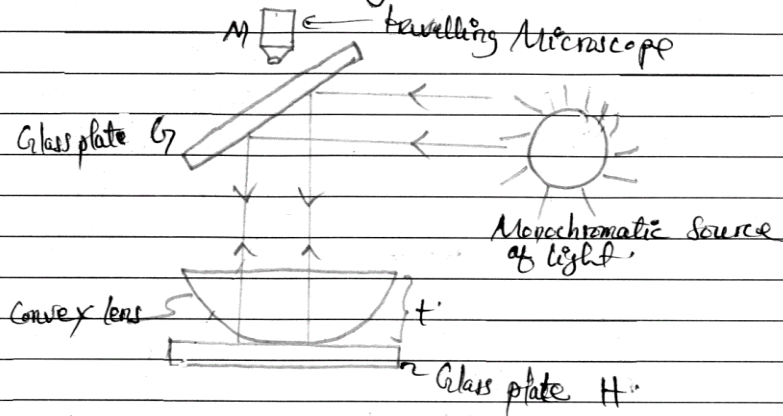 M ← travelling Microscope
Glass plate G
Monochromatic Source
of light.
Convex lens
t.
Glass plate H.